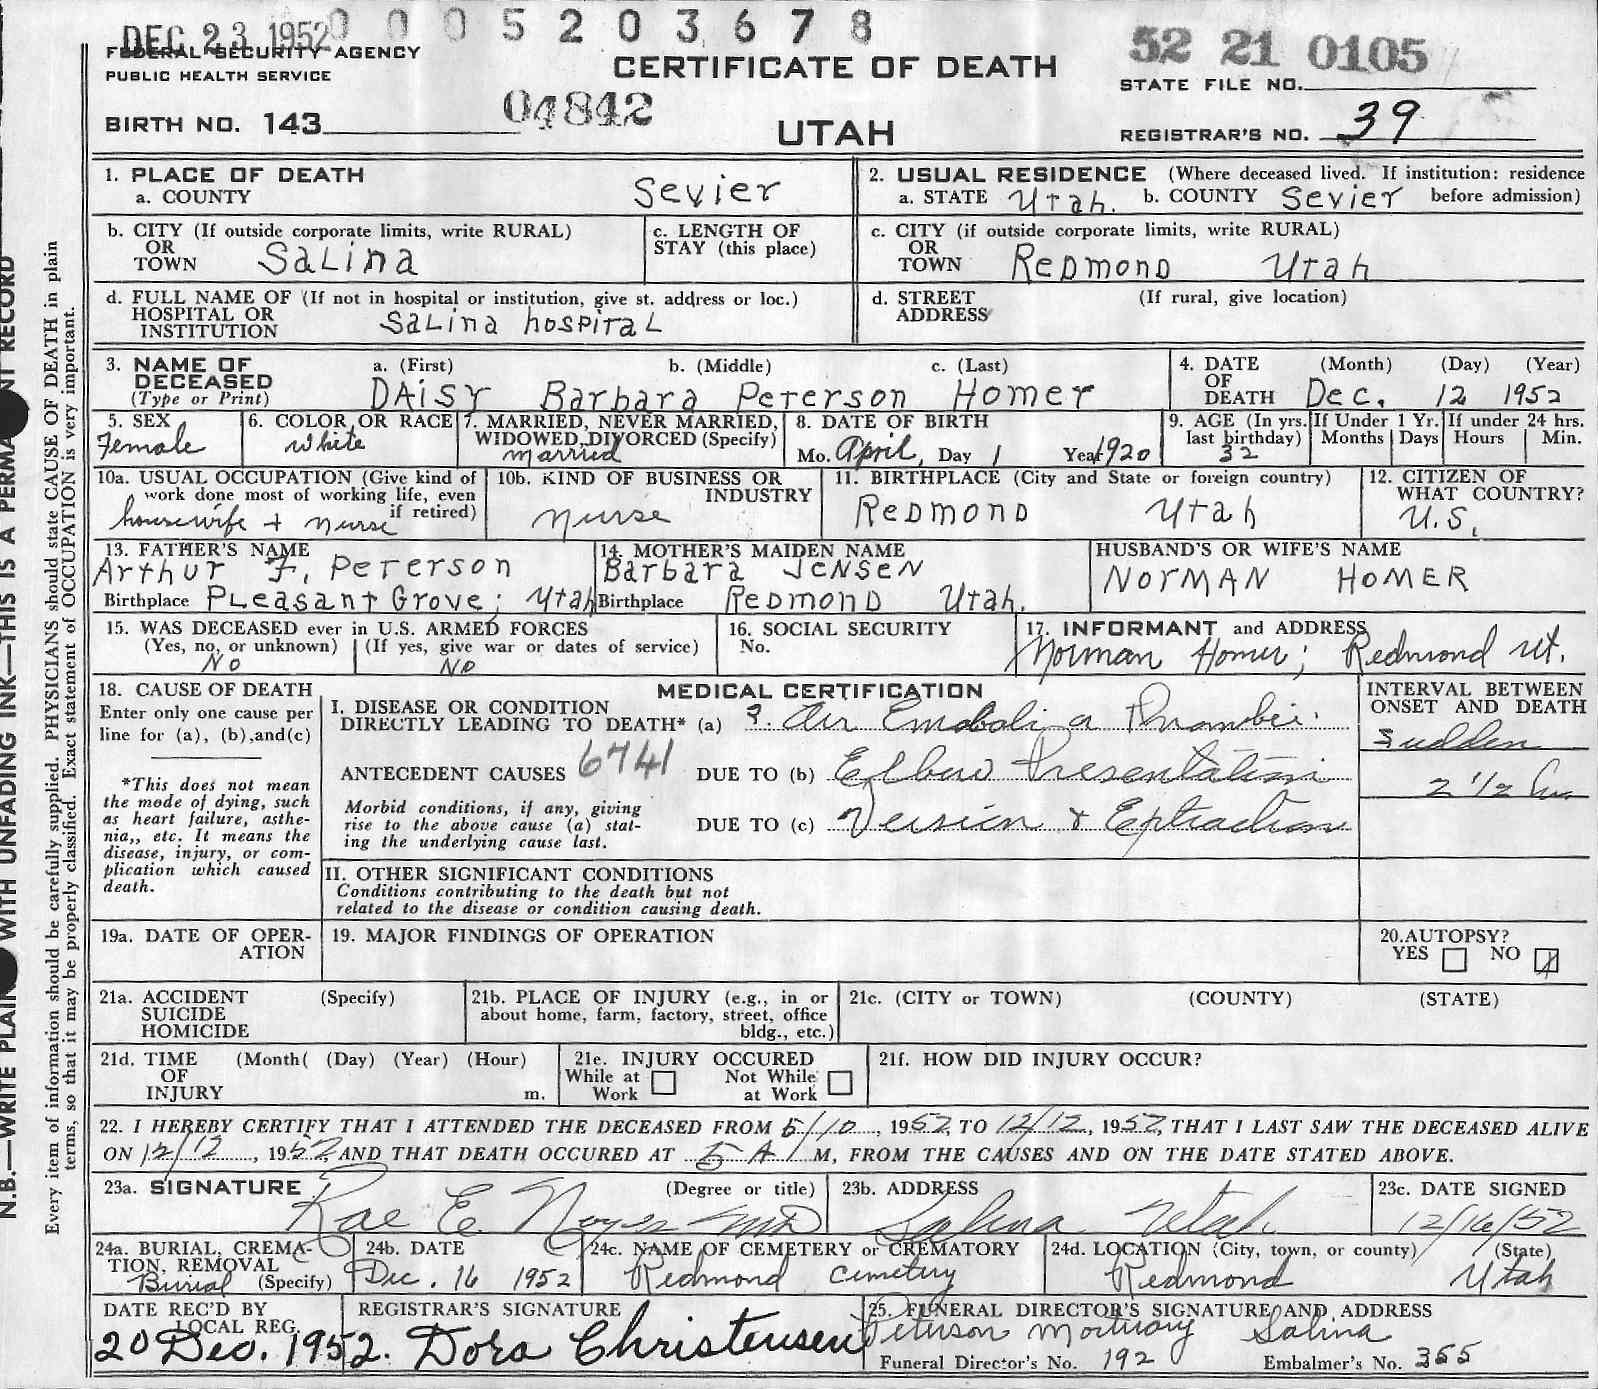 DEC 23 1952
0005203678
52 21 0105
FEDERAL SECURITY AGENCY
PUBLIC HEALTH SERVICE
CERTIFICATE OF DEATH
STATE FILE NO.
BIRTH NO. 143
04842
UTAH
REGISTRAR'S NO. 39
N.B.—WRITE PLAIN WITH UNFADING INK—THIS IS A PERMA NT RECORD
Every item of information should be carefully supplied. PHYSICIANS should state CAUSE OF DEATH in plain
terms, so that it may be properly classified. Exact statement of OCCUPATION is very important.
1. PLACE OF DEATH
a. COUNTY Sevier
2. USUAL RESIDENCE (Where deceased lived. If institution: residence
a. STATE Utah. b. COUNTY Sevier before admission)
b. CITY (If outside corporate limits, write RURAL)
OR
TOWN Salina
c. LENGTH OF
STAY (this place)
c. CITY (if outside corporate limits, write RURAL)
OR
TOWN Redmond Utah
d. FULL NAME OF (If not in hospital or institution, give st. address or loc.)
HOSPITAL OR
INSTITUTION Salina hospital
d. STREET (If rural, give location)
ADDRESS
3. NAME OF a. (First) b. (Middle) c. (Last)
DECEASED
(Type or Print) DAisy Barbara Peterson Homer
4. DATE (Month) (Day) (Year)
OF
DEATH Dec. 12 1952
5. SEX
Female
6. COLOR OR RACE
white
7. MARRIED, NEVER MARRIED,
WIDOWED, DIVORCED (Specify)
married
8. DATE OF BIRTH
Mo. April, Day 1 Year 1920
9. AGE (In yrs.
last birthday)
32
If Under 1 Yr.
Months Days
If under 24 hrs.
Hours Min.
10a. USUAL OCCUPATION (Give kind of
work done most of working life, even
if retired)
housewife + nurse
10b. KIND OF BUSINESS OR
INDUSTRY
nurse
11. BIRTHPLACE (City and State or foreign country)
Redmond Utah
12. CITIZEN OF
WHAT COUNTRY?
U.S.
13. FATHER'S NAME
Arthur F. Peterson
Birthplace Pleasant Grove; Utah
14. MOTHER'S MAIDEN NAME
Barbara Jensen
Birthplace Redmond Utah.
HUSBAND'S OR WIFE'S NAME
NORMAN HOMER
15. WAS DECEASED ever in U.S. ARMED FORCES
(Yes, no, or unknown) (If yes, give war or dates of service)
No No
16. SOCIAL SECURITY
No.
17. INFORMANT and ADDRESS
Norman Homer; Redmond Ut.
18. CAUSE OF DEATH
Enter only one cause per
line for (a), (b),and(c)
*This does not mean
the mode of dying, such
as heart failure, asthe-
nia,, etc. It means the
disease, injury, or com-
plication which caused
death.
MEDICAL CERTIFICATION
I. DISEASE OR CONDITION
DIRECTLY LEADING TO DEATH* (a) ? Air Emoboli or Thrombii.
ANTECEDENT CAUSES 6741 DUE TO (b) Elbow Presentation
Morbid conditions, if any, giving
rise to the above cause (a) stat-
ing the underlying cause last.
DUE TO (c) Version & Extraction
INTERVAL BETWEEN
ONSET AND DEATH
Sudden
2 1/2 hr
II. OTHER SIGNIFICANT CONDITIONS
Conditions contributing to the death but not
related to the disease or condition causing death.
19a. DATE OF OPER-
ATION
19. MAJOR FINDINGS OF OPERATION
20. AUTOPSY?
YES NO
21a. ACCIDENT (Specify)
SUICIDE
HOMICIDE
21b. PLACE OF INJURY (e.g., in or
about home, farm, factory, street, office
bldg., etc.)
21c. (CITY or TOWN) (COUNTY) (STATE)
21d. TIME (Month( (Day) (Year) (Hour)
OF
INJURY m.
21e. INJURY OCCURED
While at Not While
Work at Work
21f. HOW DID INJURY OCCUR?
22. I HEREBY CERTIFY THAT I ATTENDED THE DECEASED FROM 5/10, 1952, TO 12/12, 1952, THAT I LAST SAW THE DECEASED ALIVE
ON 12/12, 1952, AND THAT DEATH OCCURED AT 5 A M, FROM THE CAUSES AND ON THE DATE STATED ABOVE.
23a. SIGNATURE (Degree or title)
Rae E. Noyes MD
23b. ADDRESS
Salina Utah
23c. DATE SIGNED
12/16/52
24a. BURIAL, CREMA-
TION, REMOVAL
Burial (Specify)
24b. DATE
Dec. 16 1952
24c. NAME OF CEMETERY or CREMATORY
Redmond cemetery
24d. LOCATION (City, town, or county) (State)
Redmond Utah
DATE REC'D BY
LOCAL REG.
20 Dec. 1952.
REGISTRAR'S SIGNATURE
Dora Christensen
25. FUNERAL DIRECTOR'S SIGNATURE AND ADDRESS
Peterson Mortuary Salina
Funeral Director's No. 192 Embalmer's No. 355